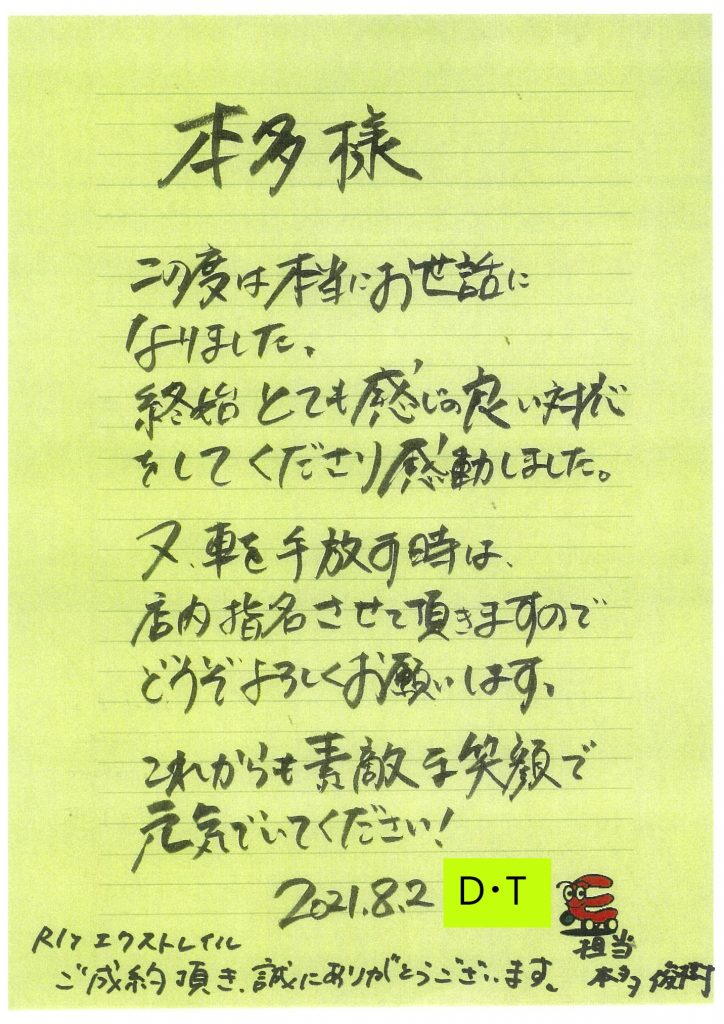 本多様
この度は本当にお世話に
なりました。
終始とても感じの良い対応
をしてくださり感動しました。
又、車を手放す時は、
店内指名させて頂きますので
どうぞよろしくお願いします。
これからも素敵な笑顔で
元気でいてください!
2021.8.2 D・T
エクストレイル
ご成約頂き、誠にありがとうございます。
担当
本多俊樹